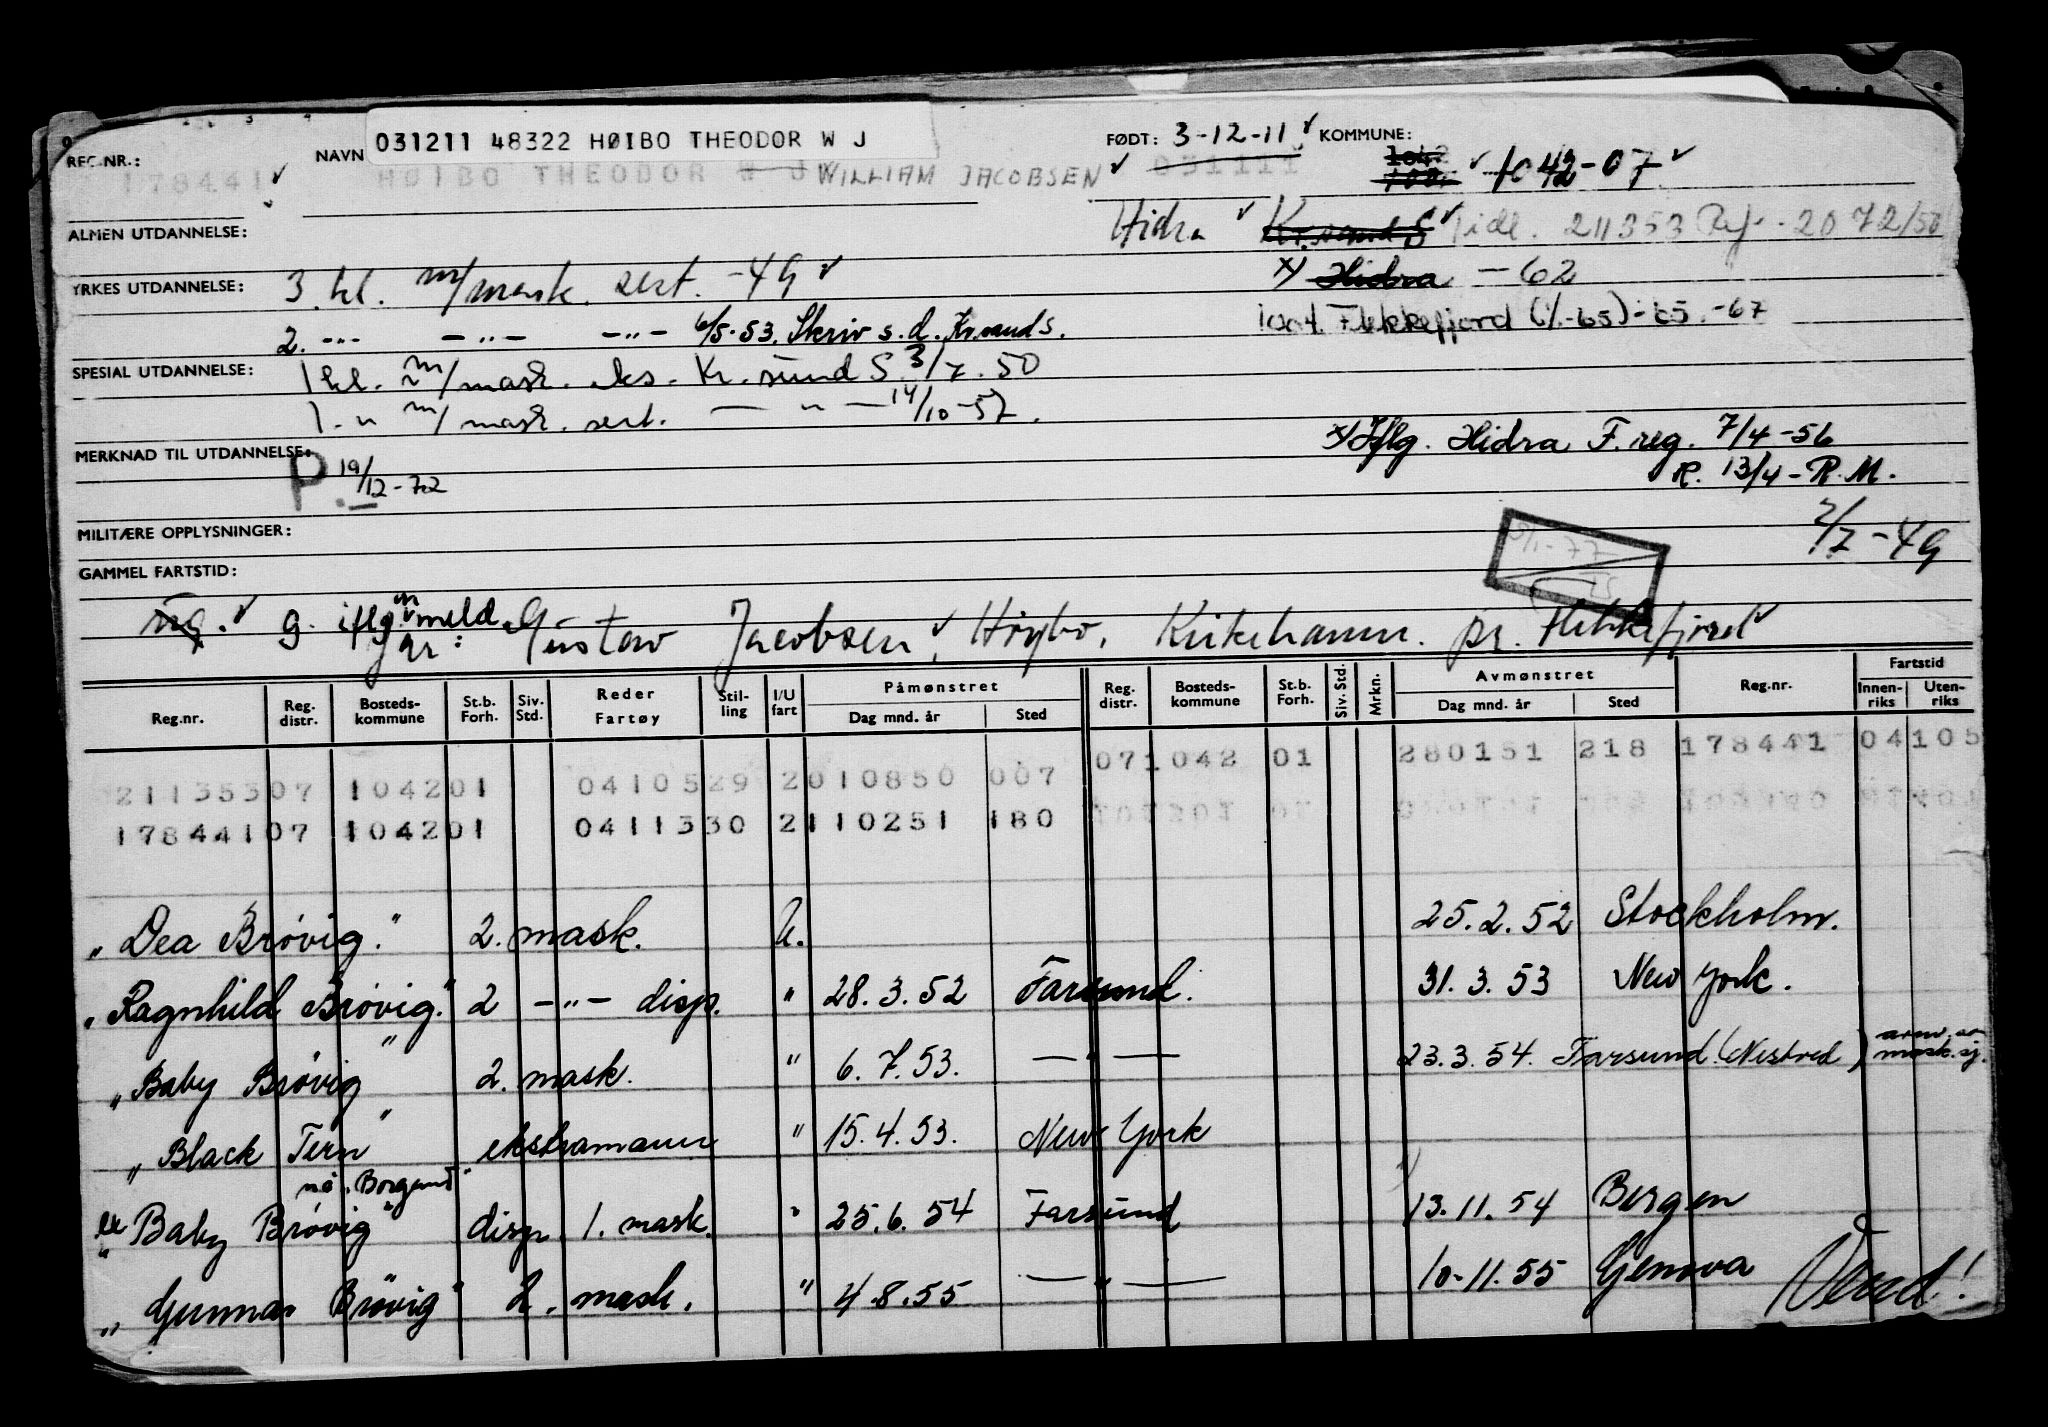 REG.NR.: 178441 NAVN 031211 48322 HØIBO THEODOR W J FØDT: 3-12-11 KOMMUNE: 1042
HØIBO THEODOR W J WILLIAM JACOBSEN 031111 1042-07
ALMEN UTDANNELSE: Hidra Kr.sand S tidl. 211353 Ref. 2072/50
YRKES UTDANNELSE: 3 kl. m/mask. sert. -49 x) Hidra -62
2. -"- -"- -"- 6/5-53. Skriv s.d. Kr.sand S. Flekkefjord (1/1-65) -65 -67
SPESIAL UTDANNELSE: 1 kl. m/mask. eks. Kr.sund S. 3/7.50
1 -"- m/mask. sert. -"- 14/10-57.
MERKNAD TIL UTDANNELSE: x) Iflg. Hidra F.reg. 7/4-56
P. 19/12-72 R. 13/4 - R.M.
MILITÆRE OPPLYSNINGER: 2/7-49
GAMMEL FARTSTID:
ug. g. iflg meld. Gustav Jacobsen, Høybo, Kirkehamn. pr. Flekkefjord
Reg.nr. Reg. distr. Bosteds- kommune St.b. Forh. Siv. Std. Reder Fartøy Stil- ling I/U fart Påmønstret Dag mnd. år Sted Reg. distr. Bosteds- kommune St.b. Forh. Siv. Std. Mrkn. Avmønstret Dag mnd. år Sted Reg.nr. Fartstid Innen- riks Uten- riks
211353 07 1042 01 0410529 2 010850 007 07 1042 01 280151 218 178441 04 105
178441 07 1042 01 0411330 2 110251 180
"Dea Brøvig." 2. mask. U. 25.2.52 Stockholm.
"Ragnhild Brøvig." 2 -"- disp. " 28.3.52 Farsund. 31.3.53 New York.
"Baby Brøvig" 2. mask. " 6.7.53. -"- 23.3.54. Farsund.
"Black Tern" ekstramann " 15.4.53. New York
nå "Borgund"
ex "Baby Brøvig" disp. 1. mask. " 25.6.54 Farsund 13.11.54 Bergen
"Gunnar Brøvig" 2. mask. " 4.8.55 -"- 10-11.55 Genova Vend!